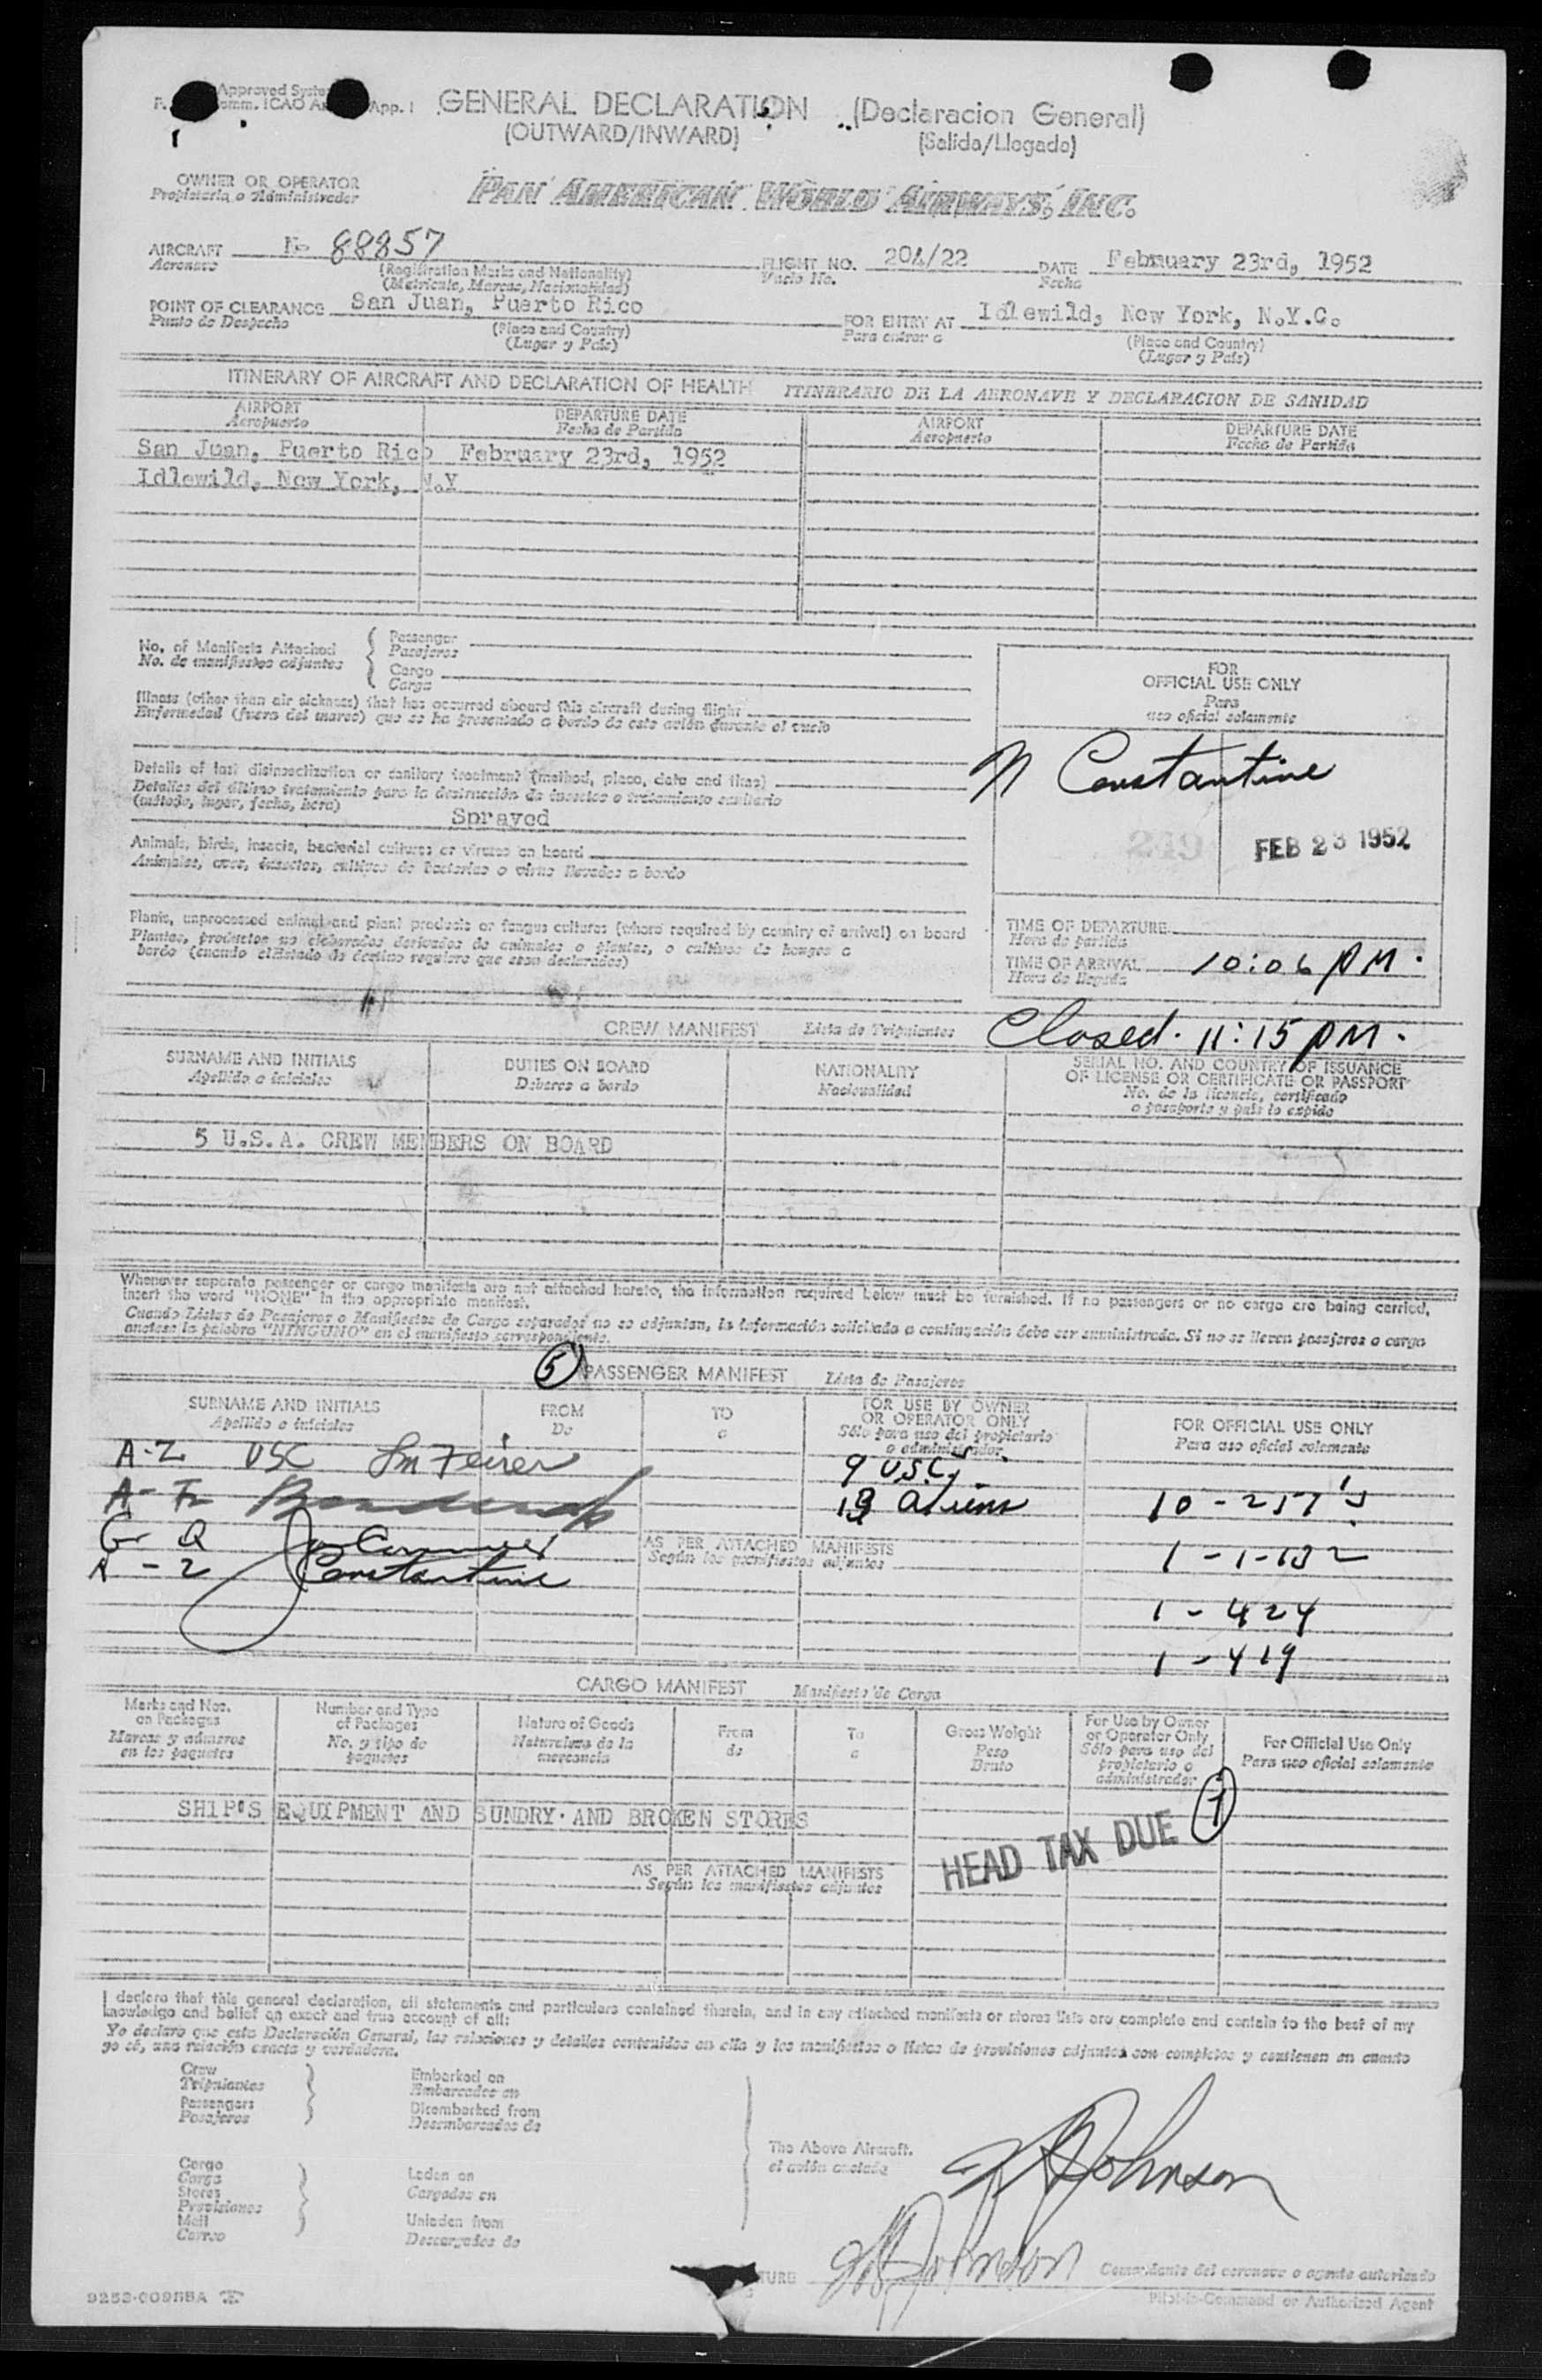 Approved Syste
omm. ICAO A App. I
GENERAL DECLARATION (Declaracion General)
(OUTWARD/INWARD) (Salida/Llegada)
OWNER OR OPERATOR
Propietario o Administrador
PAN AMERICAN WORLD AIRWAYS, INC.
AIRCRAFT N- 88857 FLIGHT NO. 204/22 DATE February 23rd, 1952
Aeronave (Registration Marks and Nationality) Vuelo No. Fecha
(Matricula, Marcas, Nacionalidad)
POINT OF CLEARANCE San Juan, Puerto Rico FOR ENTRY AT Idlewild, New York, N.Y.C.
Punto de Despacho (Place and Country) Para entrar a (Place and Country)
(Lugar y País) (Lugar y País)
ITINERARY OF AIRCRAFT AND DECLARATION OF HEALTH ITINERARIO DE LA AERONAVE Y DECLARACION DE SANIDAD
AIRPORT DEPARTURE DATE AIRPORT DEPARTURE DATE
Aeropuerto Fecha de Partida Aeropuerto Fecha de Partida
San Juan, Puerto Rico February 23rd, 1952
Idlewild, New York, N.Y
No. of Manifests Attached Passenger
No. de manifiestos adjuntos Pasajeros
Cargo
Carga
FOR
OFFICIAL USE ONLY
Para
uso oficial solamente
Illness (other than air sickness) that has occurred aboard this aircraft during flight
Enfermedad (fuera del mareo) que se ha presentado a bordo de este avión durante el vuelo
N Constantine
Details of last disinsectization or sanitary treatment (method, place, date and time)
Detalles del último tratamiento para la destrucción de insectos o tratamiento sanitario
(método, lugar, fecha, hora)
Sprayed
249 FEB 23 1952
Animals, birds, insects, bacterial cultures or viruses on board
Animales, aves, insectos, cultivos de bacterias o virus llevados a bordo
Plants, unprocessed animal and plant products or fungus cultures (where required by country of arrival) on board
Plantas, productos no elaborados derivados de animales o plantas, o cultivos de hongos a
bordo (cuando el Estado de destino requiere que sean declarados)
TIME OF DEPARTURE
Hora de partida
TIME OF ARRIVAL 10:06 PM.
Hora de llegada
CREW MANIFEST Lista de Tripulantes Closed. 11:15 PM.
SURNAME AND INITIALS DUTIES ON BOARD NATIONALITY SERIAL NO. AND COUNTRY OF ISSUANCE
Apellido o iniciales Deberes a bordo Nacionalidad OF LICENSE OR CERTIFICATE OR PASSPORT
No. de la licencia, certificado
o pasaporte y país lo expide
5 U.S.A. CREW MEMBERS ON BOARD
Whenever separate passenger or cargo manifests are not attached hereto, the information required below must be furnished. If no passengers or no cargo are being carried,
insert the word "NONE" in the appropriate manifest.
Cuando Listas de Pasajeros o Manifiestos de Cargo separados no se adjuntan, la información solicitada a continuación debe ser suministrada. Si no se llevan pasajeros o carga
anotese la palabra "NINGUNO" en el manifiesto correspondiente.
5 PASSENGER MANIFEST Lista de Pasajeros
SURNAME AND INITIALS FROM TO FOR USE BY OWNER FOR OFFICIAL USE ONLY
Apellido o iniciales De a OR OPERATOR ONLY Para uso oficial solamente
Sólo para uso del propietario
o administrador
A-Z USC 9 USCs
A-F 13 aliens 10 - 257's
G Q AS PER ATTACHED MANIFESTS 1 - 1-132
R - Z Constantine Según los manifiestos adjuntos
1 - 424
1 - 419
CARGO MANIFEST Manifiesto de Carga
Marks and Nos. Number and Type Nature of Goods From To Gross Weight For Use by Owner For Official Use Only
on Packages of Packages Naturaleza de la de a Peso or Operator Only Para uso oficial solamente
Marcas y números No. y tipo de mercancia Bruto Sólo para uso del
en los paquetes paquetes propietario o
administrador
1
SHIP'S EQUIPMENT AND SUNDRY AND BROKEN STORES
HEAD TAX DUE
AS PER ATTACHED MANIFESTS
Según los manifiestos adjuntos
I declare that this general declaration, all statements and particulars contained therein, and in any attached manifests or stores lists are complete and contain to the best of my
knowledge and belief an exact and true account of all:
Yo declaro que esta Declaración General, las relaciones y detalles contenidos en ella y los manifiestos o listas de provisiones adjuntos son completos y contienen en cuanto
yo sé, una relación exacta y verdadera.
Crew Embarked on
Tripulantes Embarcados en
Passengers Disembarked from
Pasajeros Desembarcados de
The Above Aircraft.
el avión anotado
Johnson
Cargo
Carga Laden on
Stores Cargados en
Provisiones
Mail Unladen from
Correo Descargados de
TURE Johnson Comandante del aeronave o agente autorizado
9253-00955A Pilot-in-Command or Authorized Agent